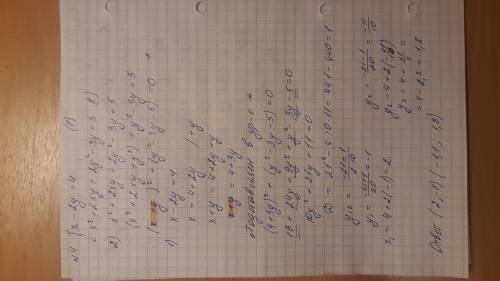 N4 { x - 2y = 4 (1)
x² + 2xy + 2y² - 3y = 5 (2)
2) x² + 2xy + 2y² - 3y = 5
(x² + 2xy + y²) + y² - 3y = 5
(x+y)² + (y² - 3y - 5) = 0 *
1) x - 2y = 4
x = 4 + 2y | + y
x + y = 4 + 2y + y
x + y = 4 + 3y
Подставляем в ур-е *
(4+3y)² + (y² - 3y - 5) = 0
16 + 24y + 9y² + y² - 3y - 5 = 0
10y² + 21y + 11 = 0
D = 21² - 4·10·11 = 441 - 440 = 1
y₁,₂ = -21±1 / 2·10
y₁ = -21+1 / 20 = -1
y₂ = -21-1 / 20 = -11 / 10
x₁ = 4 + 2(-1) = 2
= 4 - 2,2 = 1,8
Ответ (2; -1) (-1,1; 1,8)